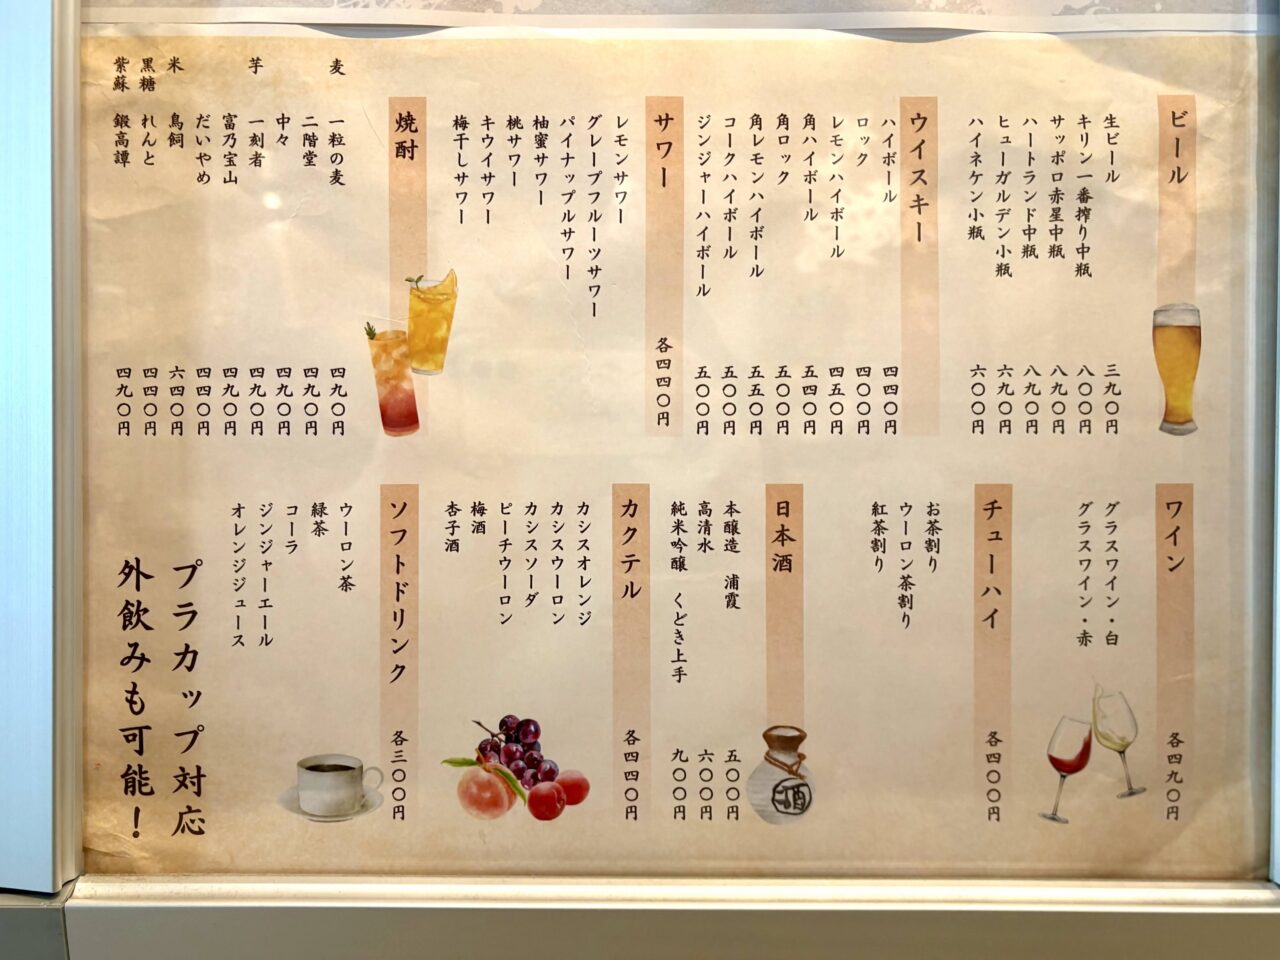 ビール
生ビール 三九〇円
キリン一番搾り中瓶 八〇〇円
サッポロ赤星中瓶 八九〇円
ハートランド中瓶 八九〇円
ヒューガルデン小瓶 六九〇円
ハイネケン小瓶 六〇〇円
ウイスキー
ハイボール 四四〇円
ロック 四〇〇円
レモンハイボール 四五〇円
角ハイボール 五四〇円
角ロック 五〇〇円
角レモンハイボール 五五〇円
コークハイボール 五〇〇円
ジンジャーハイボール 五〇〇円
サワー 各四四〇円
レモンサワー
グレープフルーツサワー
パイナップルサワー
柚蜜サワー
桃サワー
キウイサワー
梅干しサワー
焼酎
麦 一粒の麦 四九〇円
二階堂 四九〇円
中々 四九〇円
芋 一刻者 四九〇円
富乃宝山 四九〇円
だいやめ 四四〇円
米 鳥飼 六四〇円
黒糖 れんと 四四〇円
紫蘇 鍛高譚 四九〇円
ワイン 各四九〇円
グラスワイン・白
グラスワイン・赤
チューハイ 各四〇〇円
お茶割り
ウーロン茶割り
紅茶割り
日本酒
本醸造 浦霞 五〇〇円
高清水 六〇〇円
純米吟醸 くどき上手 九〇〇円
酒
カクテル 各四四〇円
カシスオレンジ
カシスウーロン
カシスソーダ
ピーチウーロン
梅酒
杏子酒
ソフトドリンク 各三〇〇円
ウーロン茶
緑茶
コーラ
ジンジャーエール
オレンジジュース
プラカップ対応
外飲みも可能！